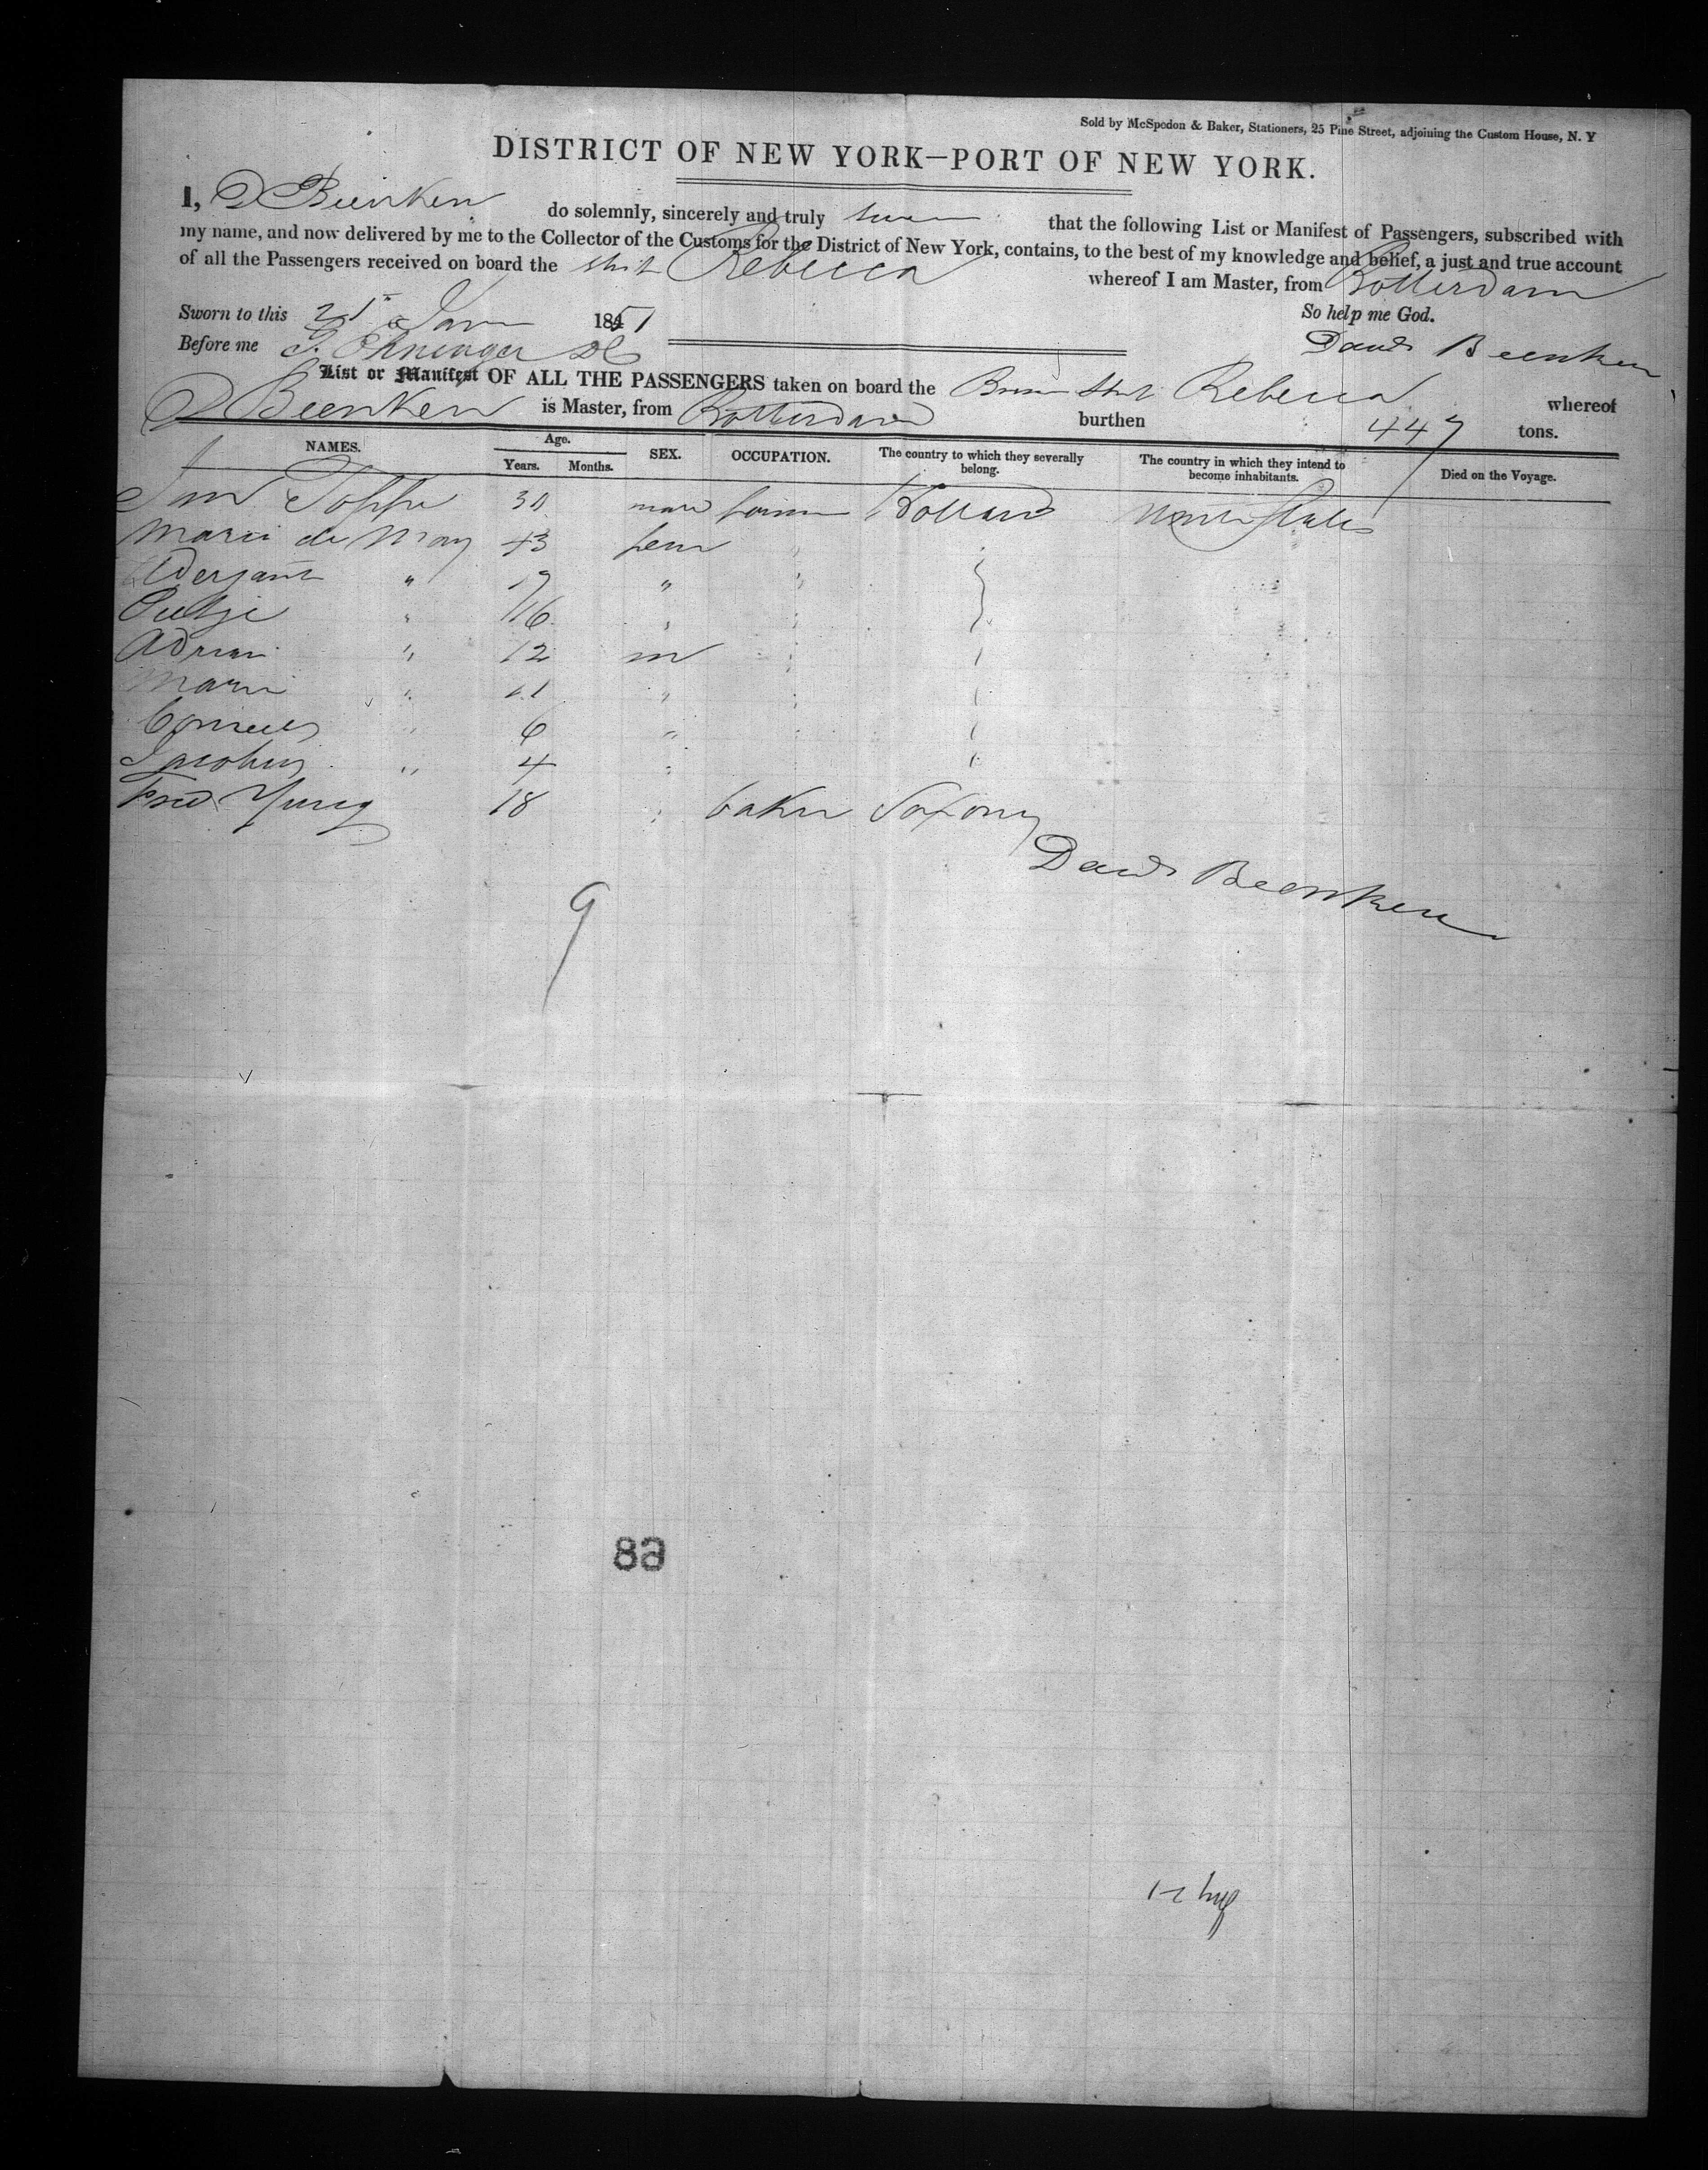 Sold by McSpedon & Baker, Stationers, 25 Pine Street, adjoining the Custom House, N. Y
DISTRICT OF NEW YORK—PORT OF NEW YORK.
I, D Beenken do solemnly, sincerely and truly swear that the following List or Manifest of Passengers, subscribed with
my name, and now delivered by me to the Collector of the Customs for the District of New York, contains, to the best of my knowledge and belief, a just and true account
of all the Passengers received on board the ship Rebecca whereof I am Master, from Rotterdam
Sworn to this 21st Jan 1851 So help me God.
Before me David Beenken
List or Manifest OF ALL THE PASSENGERS taken on board the Brem Ship Rebecca whereof
D Beenken is Master, from Rotterdam burthen 447 tons.
NAMES. Age. Years. Months. SEX. OCCUPATION. The country to which they severally belong. The country in which they intend to become inhabitants. Died on the Voyage.
Jan 30 male farmer Holland United States
Marii de May 43 fem
" 19 "
" 16 "
Adrian " 12 m
Marin " 11 "
Cornelis " 6 "
Jacobus " 4 "
Fred Yung 18 " baker Saxony
David Beenken
9
68